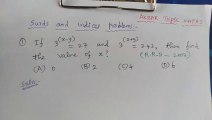 Surds and indices problems:-
AKBAR Topic NOTES
① If 3^(x-y) = 27 and 3^(x+y) = 243, then find
the value of x? (R.R.B - 2002)
(A) 0 (B) 2 (C) 4 (D) 6
Soln: